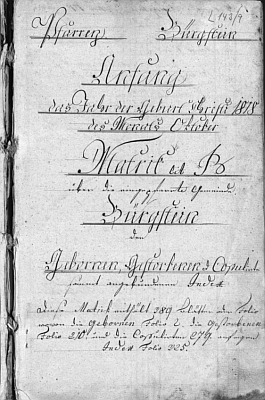 L 143/9
Pfarreÿ Bürgstein
Anfang
das Jahr der Geburt Christi 1878
des Monats Oktober
Matrik B
über die eingepfarrte Gemeinde
Bürgstein
den
Gebornen, Gestorbenen & Copulirten
sammt angebundenem Index
Diese Matrik enthält 289 Blätter oder Folio
wovon die Gebornen Folio 2, die Gestorbenen
Folio 210 und die Copulirten 279 anfangen
Index Folio 225.